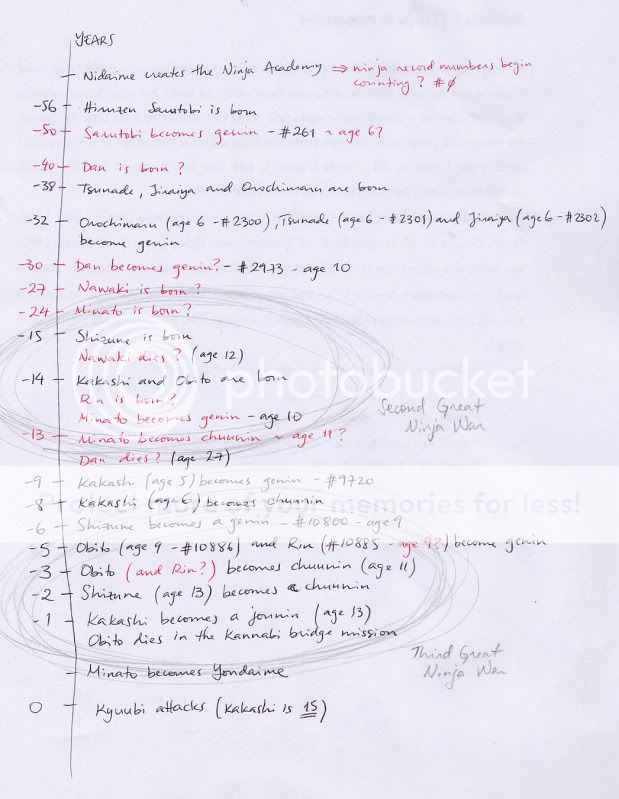 YEARS
Nidaime creates the Ninja Academy ⇒ ninja record numbers begin
counting? #0
-56 Hiruzen Sarutobi is born
-50 Sarutobi becomes genin - #261 ~ age 6?
-40 Dan is born?
-38 Tsunade, Jiraiya and Orochimaru are born
-32 Orochimaru (age 6 - #2300), Tsunade (age 6 - #2301) and Jiraiya (age 6 - #2302)
become genin
-30 Dan becomes genin? - #2973 - age 10
-27 Nawaki is born?
-24 Minato is born?
-15 Shizune is born
Nawaki dies? (age 12)
-14 Kakashi and Obito are born
Rin is born?
Minato becomes genin - age 10
-13 Minato becomes chuunin ~ age 11?
Dan dies? (age 27)
Second Great
Ninja War
-9 Kakashi (age 5) becomes genin - #9720
-8 Kakashi (age 6) becomes chuunin
-6 Shizune becomes a genin - #10800 - age 9
-5 Obito (age 9 - #10886) and Rin (#10885 - age 9?) become genin
-3 Obito (and Rin?) becomes chuunin (age 11)
-2 Shizune (age 13) becomes a chuunin
-1 Kakashi becomes a jounin (age 13)
Obito dies in the Kannabi bridge mission
Third Great
Ninja War
Minato becomes Yondaime
0 Kyuubi attacks (Kakashi is 15)
photobucket
of your memories for less!